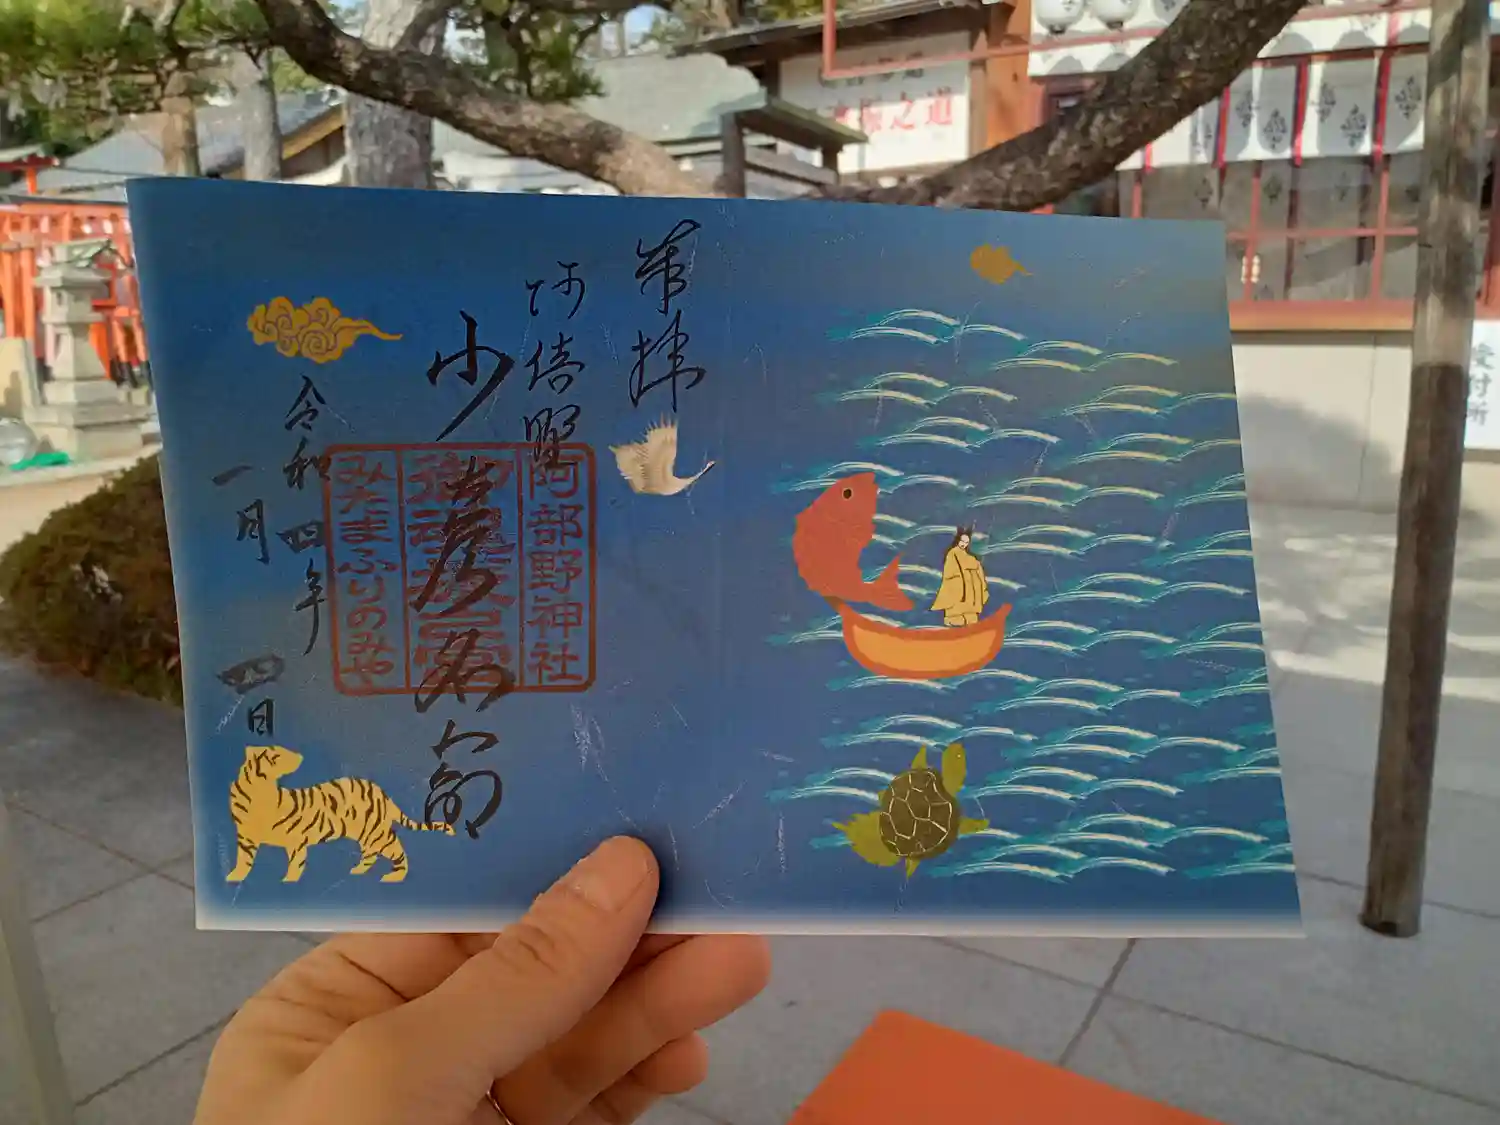 奉拝
阿倍野
少彦名命
令和四年
一月
四日
阿部野神社
御魂振之宮
みたまふりのみや
之道
受付所